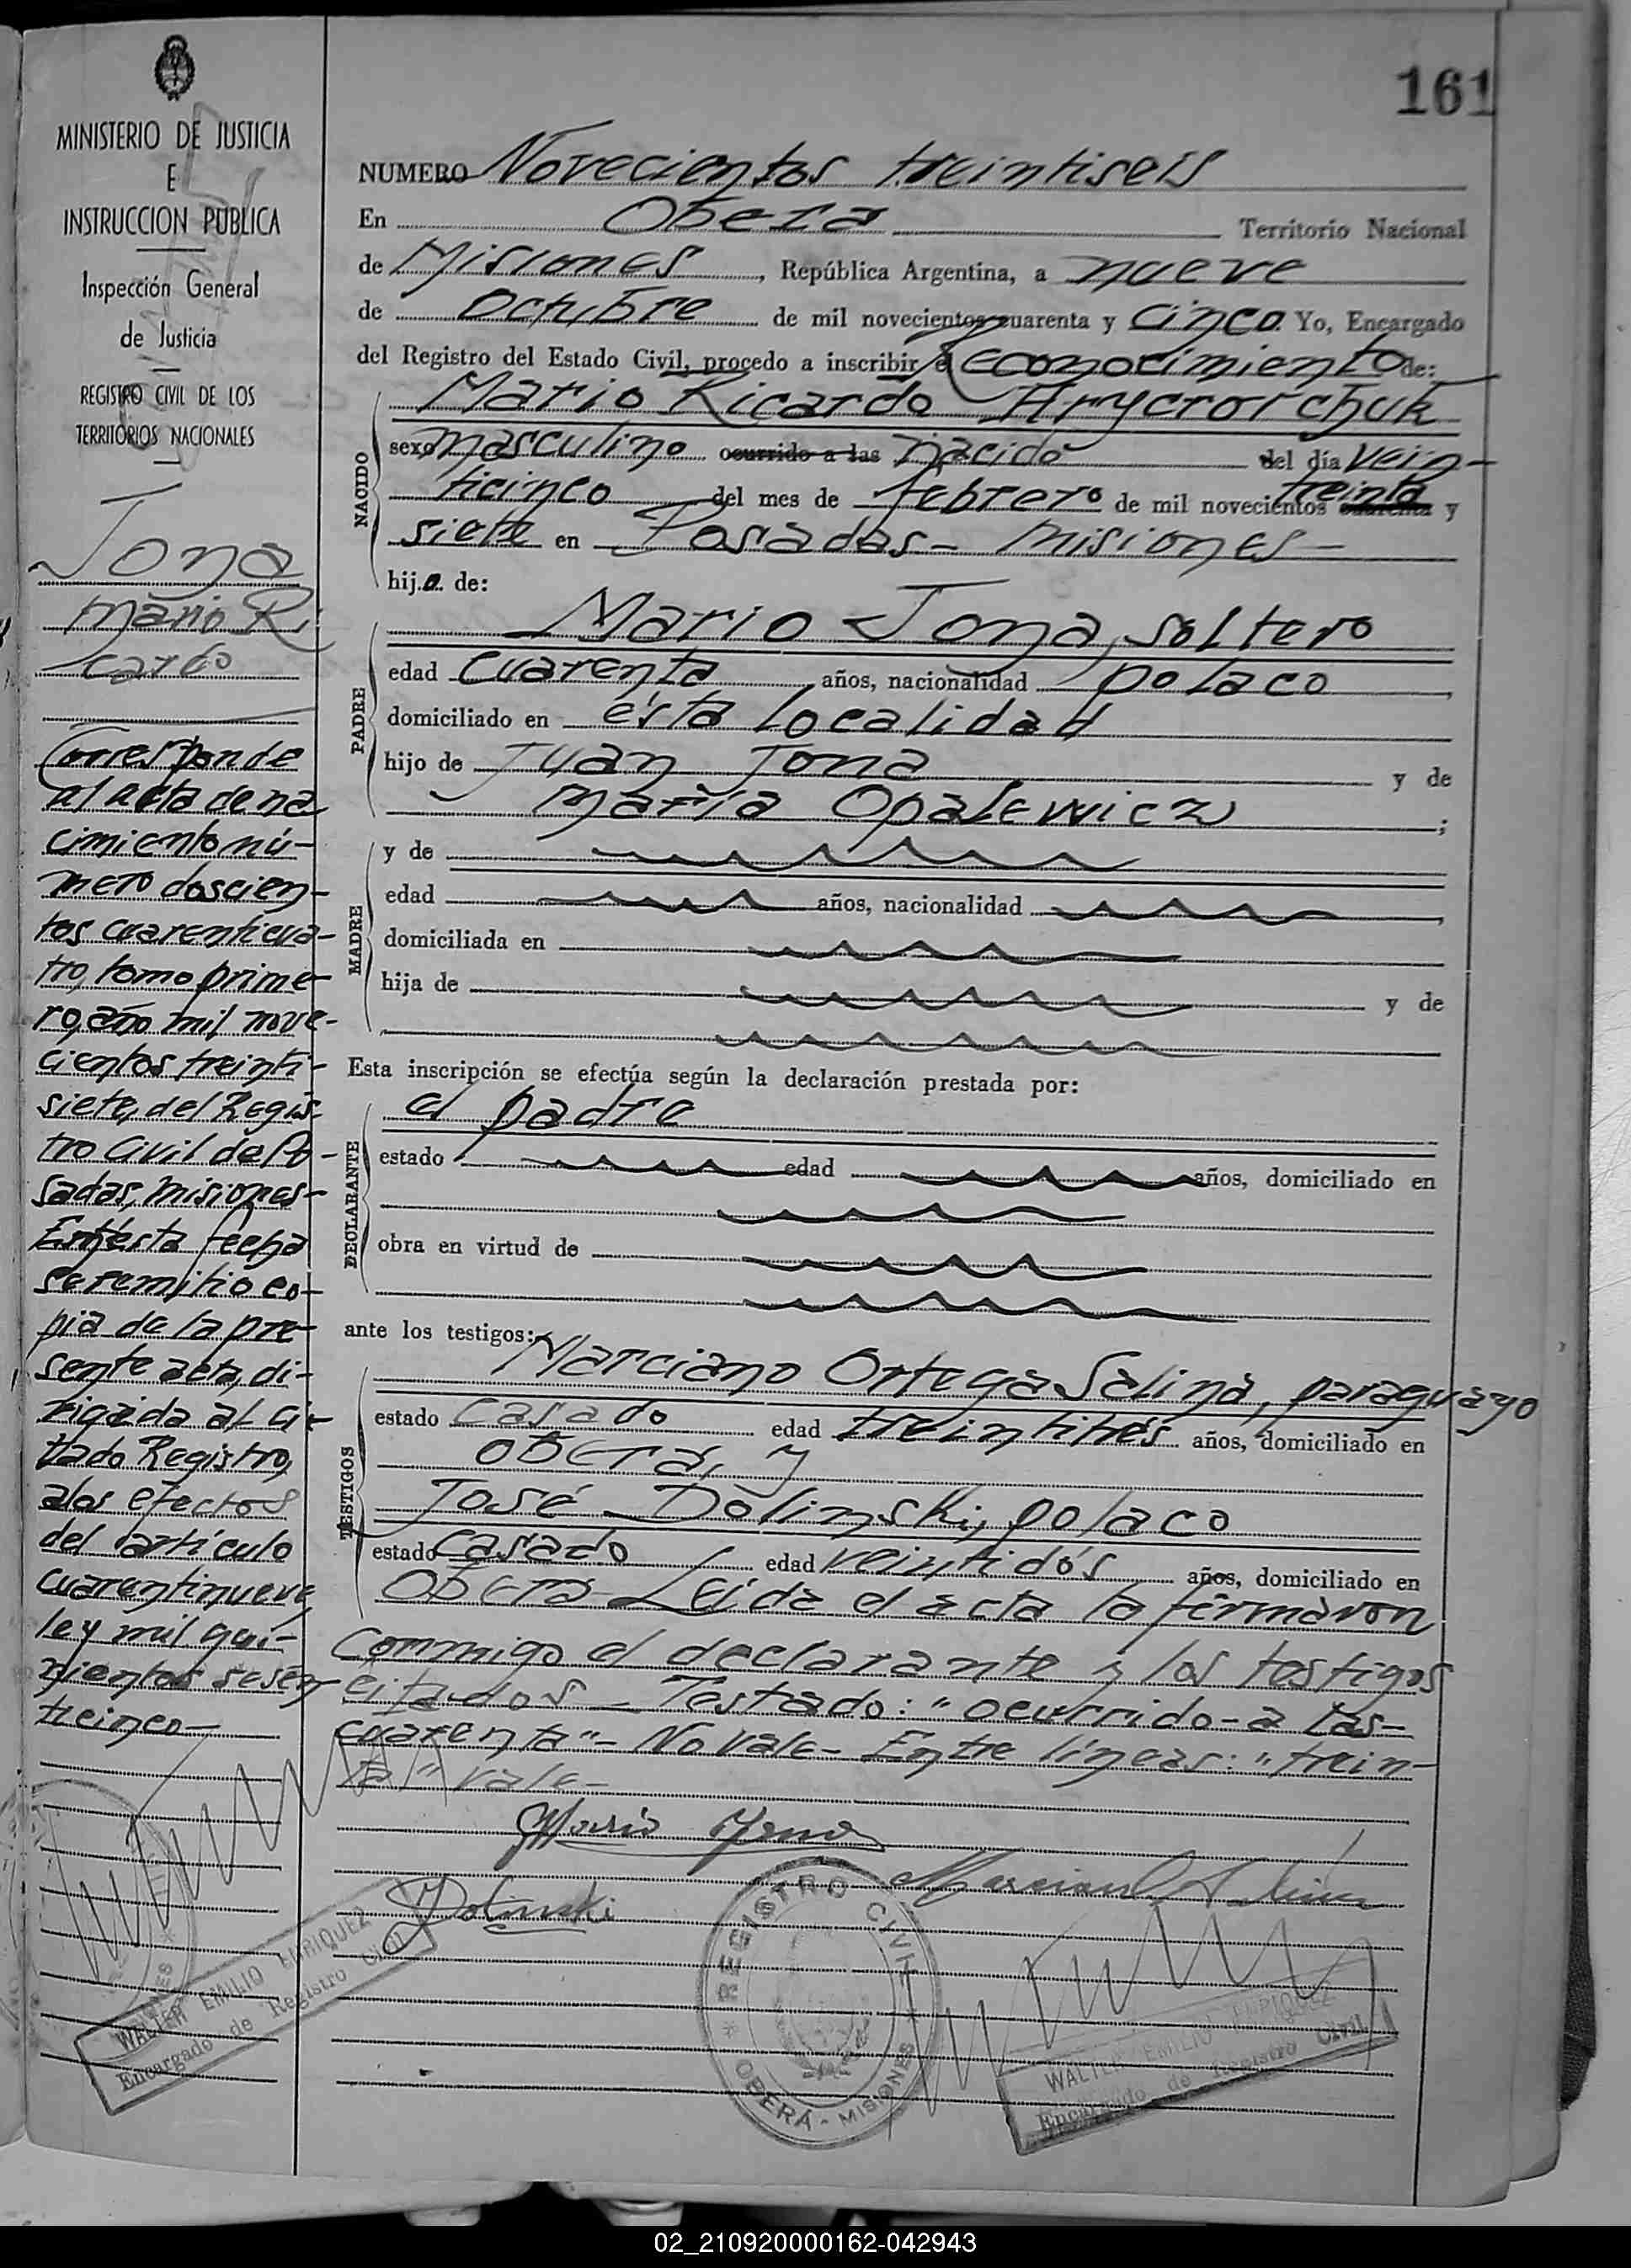 161
MINISTERIO DE JUSTICIA
E
INSTRUCCION PUBLICA
Inspección General
de Justicia
REGISTRO CIVIL DE LOS
TERRITORIOS NACIONALES
Jona
Mario Ri
cardo
Corresponde
al acta de na
cimiento nú-
mero doscien-
tos cuarenticua-
tro, tomo prime-
ro, año mil nove-
cientos treinti-
siete, del Regis-
tro Civil de Po-
sadas, Misiones-
En ésta fecha
se remitio co-
pia de la pre-
sente acta, di-
rigida al ci-
tado Registro,
a los efectos
del artículo
cuarentinueve,
ley mil qui-
nientos sesen
ticinco-
NUMERO Novecientos treintiseis
En Obera Territorio Nacional
de Misiones, República Argentina, a nueve
de Octubre de mil novecientos cuarenta y cinco. Yo, Encargado
del Registro del Estado Civil, procedo a inscribir el Reconocimiento de:
NACIDO
Mario Ricardo
sexo masculino ocurrido a las nacido del día vein-
ticinco del mes de febrero de mil novecientos treinta cuarenta y
siete en Posadas- Misiones-
hijo de:
PADRE
Mario Jona, soltero
edad cuarenta años, nacionalidad polaco,
domiciliado en ésta localidad
hijo de Juan Jona y de
María Opalewicz;
MADRE
y de
edad años, nacionalidad
domiciliada en
hija de y de
Esta inscripción se efectúa según la declaración prestada por:
DECLARANTE
el padre
estado edad años, domiciliado en
obra en virtud de
ante los testigos:
TESTIGOS
Marciano Ortega Salina, paraguayo
estado casado edad treintitrés años, domiciliado en
Obera, y
José Dolinski, polaco
estado casado edad veintidós años, domiciliado en
Obera- Leída el acta la firmaron
conmigo el declarante y los testigos
citados- Testado: "ocurrido-a las-
cuarenta"- No vale- Entre líneas: "trein-
ta" vale-
Mario Jona
Dolinski
REGISTRO CIVIL
OBERÁ - MISIONES
WALTER EMILIO ENRIQUEZ
Encargado de Registro Civil
WALTER EMILIO ENRIQUEZ
Encargado de Registro Civil
02_210920000162-042943